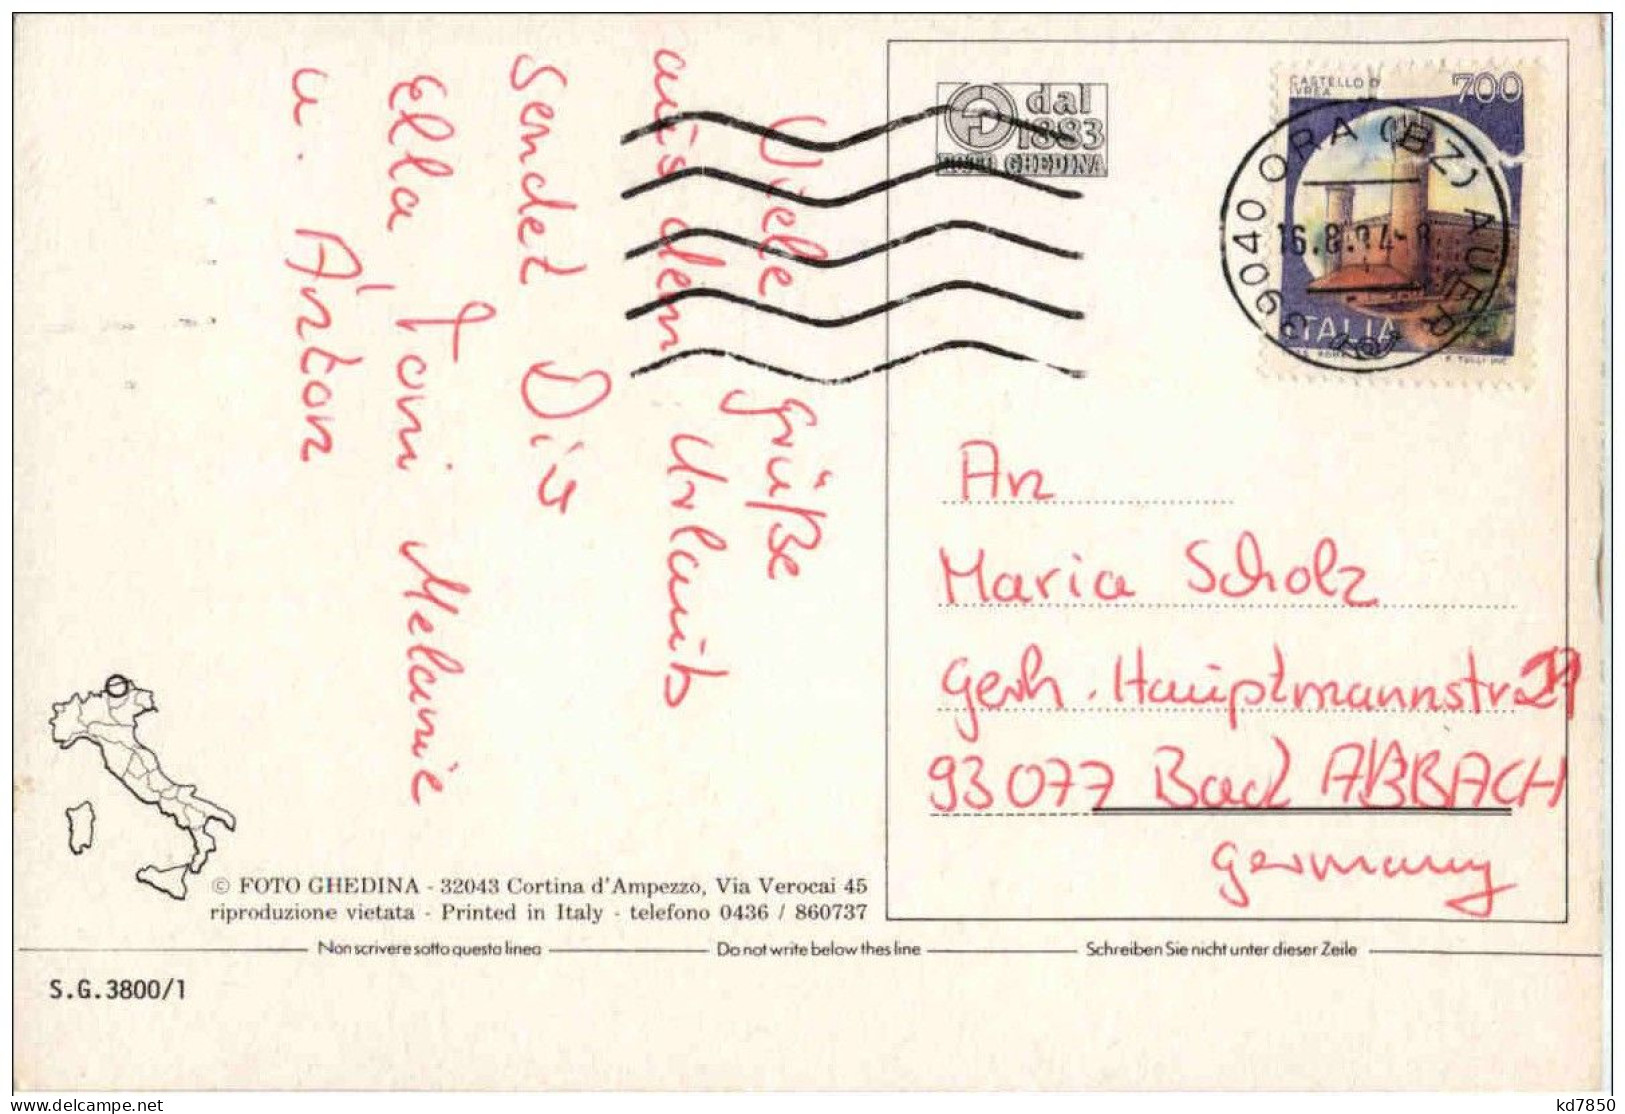 Viele Grüße
aus dem Urlaub
sendet Dir
Ella, Toni Melanie
u. Anton
dal
1883
FOTO GHEDINA
CASTELLO D'
IVREA
700
ITALIA
39040 ORA (BZ) AUER
16.8.94-8
An
Maria Scholz
Gerh. Hauptmannstr.
93077 Bad ABBACH
Germany
© FOTO GHEDINA - 32043 Cortina d'Ampezzo, Via Verocai 45
riproduzione vietata - Printed in Italy - telefono 0436 / 860737
Non scrivere sotto questa linea
Do not write below thes line
Schreiben Sie nicht unter dieser Zeile
S.G.3800/1
kd7850